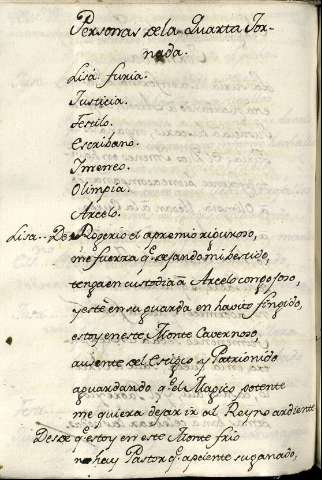 Personas de la Quarta Jor-
nada.
Lisa furia.
Justicia.
Festilo.
Escribano.
Imeneo.
Olimpia.
Arcelo.
Lisa.. De Rogerio el apremio riguroso,
me fuerza q.e dejando mi vestido,
tenga en custodia a Arcelo congojoso,
y esté en su guarda en havito fingido,
estoy en este Monte Cavernoso,
ausente del Estigio y Patrio nido
aguardando q.e el Magico potente
me quiera dejar ir al Reyno ardiente
Desde q.e estoy en este Monte frio
no hay Pastor q.e apaciente su ganado,